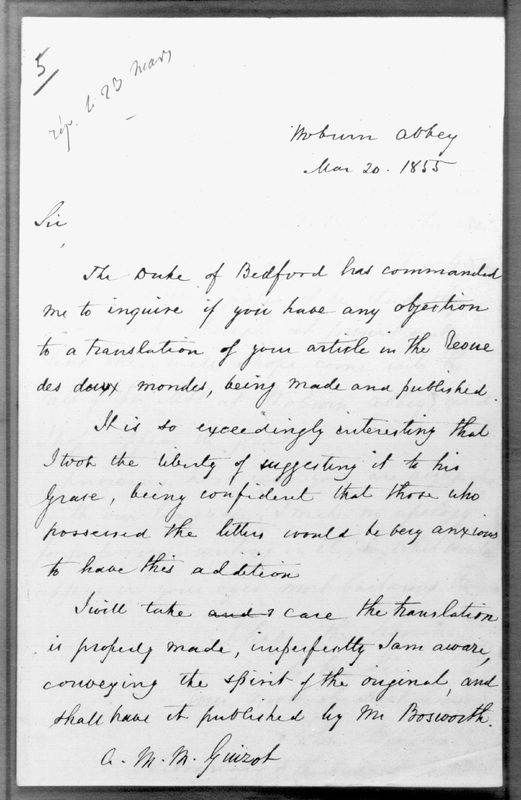 5
rép. le 23 mars
Woburn Abbey
Mar 20. 1855
Sir
The Duke of Bedford has commanded
me to inquire if you have any objection
to a translation of your article in the Revue
des deux mondes, being made and published.
It is so exceedingly interesting that
I took the liberty of suggesting it to his
Grace, being confident that those who
possessed the letters would be very anxious
to have this addition
I will take care the translation
is properly made, imperfectly I am aware,
conveying the spirit of the original, and
shall have it published by Mr Bosworth.
a. M. M. Guizot